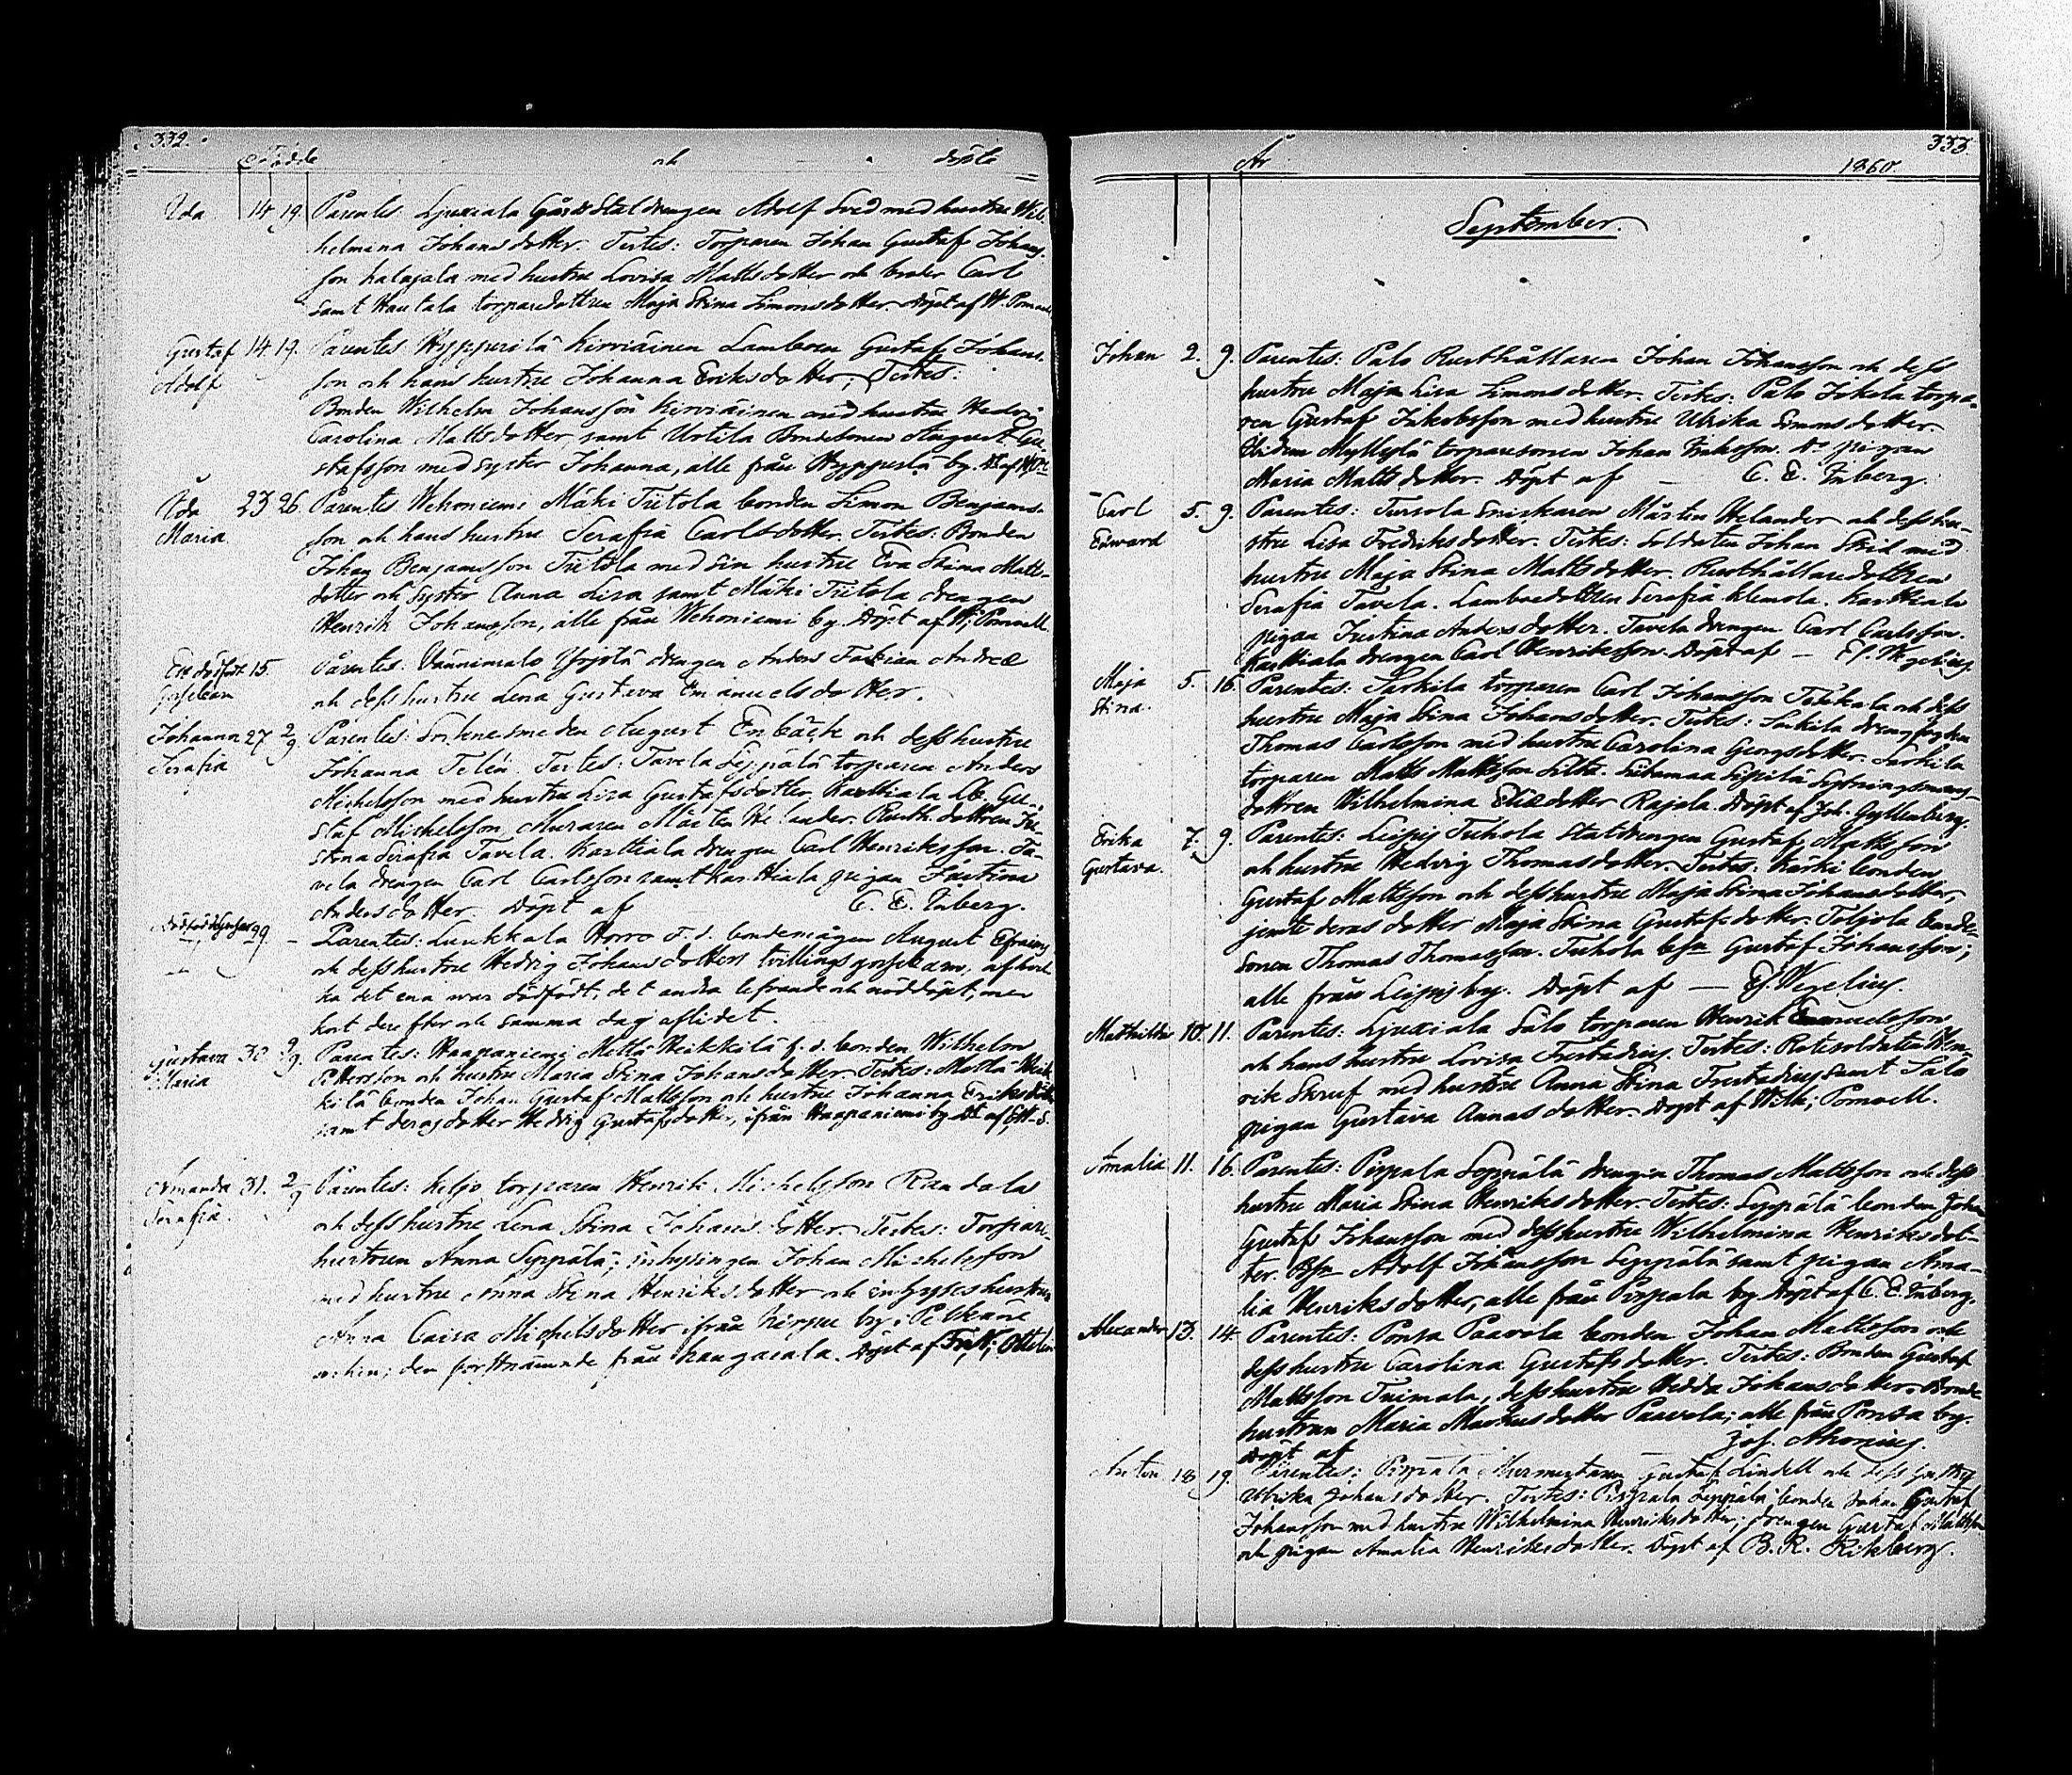 332.
Födde och döpte
Ida 14. 19. Parentes Ljuxiala Gårds Staldrengen Adolf Sved med hustru Wil-
helmina Johansdotter. Testes: Torparen Johan Gustaf Johans-
son Kalajala med hustru Lovisa Mattsdotter och broder Carl
samt Hautala torparedottren Maja Stina Simonsdotter. Döpt af W. Pomoell
Gustaf 14. 19. Parentes Hyppärilä Kirviäinen Lamboen Gustaf Johans-
Adolf son och hans hustru Johanna Eriksdotter; Testes:
Bonden Wilhelm Johansson Kirviäinen med hustru Hedvig
Carolina Mattsdotter samt Urtila Bondesonen August Gu-
stafsson med syster Johanna, alle från Hypperilä by.
Ida 23 26. Parentes Wehoniemi Mäki Tiitola bonden Simon Benjams-
Maria son och hans hustru Serafia Carlsdotter. Testes: Bonden
Johan Benjamsson Tiitola med sin hustru Eva Stina Matts-
dotter och Syster Anna Lisa samt Mäki Tiitola drengen
Henrik Johansson, alle från Wehoniemi by. Döpt af W. Pomoell
Ett dödfödt 15. Parentes: Vännimalo Yrjölä drengen Anders Fabian Andreæ
gossebarn och dess hustru Lena Gustava Emanuelsdotter.
Johanna 27. 2/9. Parentes: Socknesmeden August Enbäck och dess hustru
Serafia Johanna Telén. Testes: Tavela Seppälä torparen Anders
Michelsson med hustru Lisa Gustafsdotter. Karttiala Gu-
staf Michelsson, Muraren Mårten Helander. Rusth. dottren Ju-
stina Serafia Tavela. Karttiala drengen Carl Henriksson. Ta-
vela drengen Carl Carlsson samt Karttiala pigan Justina
Andersdotter. Döpt af C. E. Inberg.
29. Parentes: Luukkala Horro f. d. bondemågen August Efraims
och dess hustru Hedvig Johansdotters tvillings gossebarn, af hvil-
ka det ena war dödfödt, det andra lefvande och nöddöpt, men
kort derefter och samma dag aflidet.
Gustava 30. 9/9. Parentes: Haapaniemi Mettä Heikkilä f. d. bonden Wilhelm
Maria Pettersson och hustru Maria Stina Johansdotter. Testes: Mettä Heik-
kilä bonden Johan Gustaf Mattsson och hustru Johanna Eriksdotter
samt deras dotter Hedvig Gustafsdotter, ifrån Haapaniemi by
Amanda 31. 2/9 Parentes: Keljo torparen Henrik Michelsson Randala
Serafia. och dess hustru Lena Stina Johansdotter. Testes: Torpare-
hustrun Anna Seppälä; inhysingen Johan Michelsson
med hustru Anna Stina Henriksdotter och inhyseshustrun
Anna Caisa Michelsdotter ifrån by i Pelkäne
socken; den förstnämnde från Kangasala. Döpt af
333.
År 1860.
September.
Johan 2. 9. Parentes: Palo Rusthållaren Johan Johansson och dess
hustru Maja Lisa Simonsdotter. Testes: Palo Jokela torpa-
ren Gustaf Jakobsson med hustru Ulrika Simonsdotter
Ibidem Myllylä torparesonen Johan Eriksson. Do pigan
Maria Mattsdotter. Döpt af — C. E. Inberg.
Carl 5. 9. Parentes: Tursola Snickaren Mårten Helander och dess hu-
Edward stru Lisa Fredriksdotter. Testes: Soldaten Johan Strid med
hustru Maja Stina Mattsdotter. Rusthållaredottren
Serafia Tavela. Lamboedottren Serafia Klemola. Karttiala
pigan Justina Andersdotter. Tavela drengen Carl Carlsson.
Karttiala drengen Carl Henriksson. Döpt af — Ef. Wegelius
Maja 5. 16. Parentes: Sarkila torparen Carl Johansson och dess
Stina. hustru Maja Stina Johansdotter. Testes: Sarkila drengfogden
Thomas Carlsson med hustru Carolina Georgsdotter. Sarkila
torparen Matts Mattsson Silta. Liitamaa Sipilä
dottren Wilhelmina Eliædotter Rajala. Döpt af Joh. Gyllenberg.
Erika 7. 9. Parentes: Leipis Tuhola Statdrengen Gustaf Mattsson
Gustava. och hustru Hedvig Thomasdotter. Testes: Kärki bonden
Gustaf Mattsson och dess hustru Maja Stina Johansdotter,
jemte deras dotter Maja Stina Gustafsdotter. Toljola bonde-
sonen Thomas Thomasson. Tuhola bsn Gustaf Johansson;
alle från Leipis by. Döpt af — Ef. Wegelius.
Mathilda 10. 11. Parentes: Ljuxiala Salo torparen Henrik Emmelsson
och hans hustru Lovisa Frestadius. Testes: Rotesoldaten Hen-
rik Skruf med hustru Anna Stina Frestadius samt Salo
pigan Gustava Annasdotter. Döpt af Wilh. Pomoell.
Amalia 11. 16. Parentes: Pispala Seppälä drengen Thomas Mattsson och dess
hustru Maria Stina Henriksdotter. Testes: Seppälä bonden Johan
Gustaf Johansson med dess hustru Wilhelmina Henriksdot-
ter. Bsn Adolf Johansson Seppälä samt pigan Ama-
lia Henriksdotter, alle från Pispala by. Döpt af C. E. Inberg.
Alexander 13. 14. Parentes: Ponsa Paavola bonden Johan Mattsson och
dess hustru Carolina Gustafsdotter. Testes: Bonden Gustaf
Mattsson Tuimala, dess hustru Hedda Johansdotter. Bonde-
hustrun Maria Markusdotter Paavola; alle från Ponsa by.
Döpt af — Jos. Ahonius.
Anton 18 19. Parentes: Pispala Murmestaren Gustaf Lindell och dess hustru
Ulrika Johansdotter. Testes: Pispala Seppälä bonden Johan Gustaf
Johansson med hustru Wilhelmina Henriksdotter; drengen Gustaf Mattsson
och pigan Amalia Henriksdotter. Döpt af B. R. Rikberg.